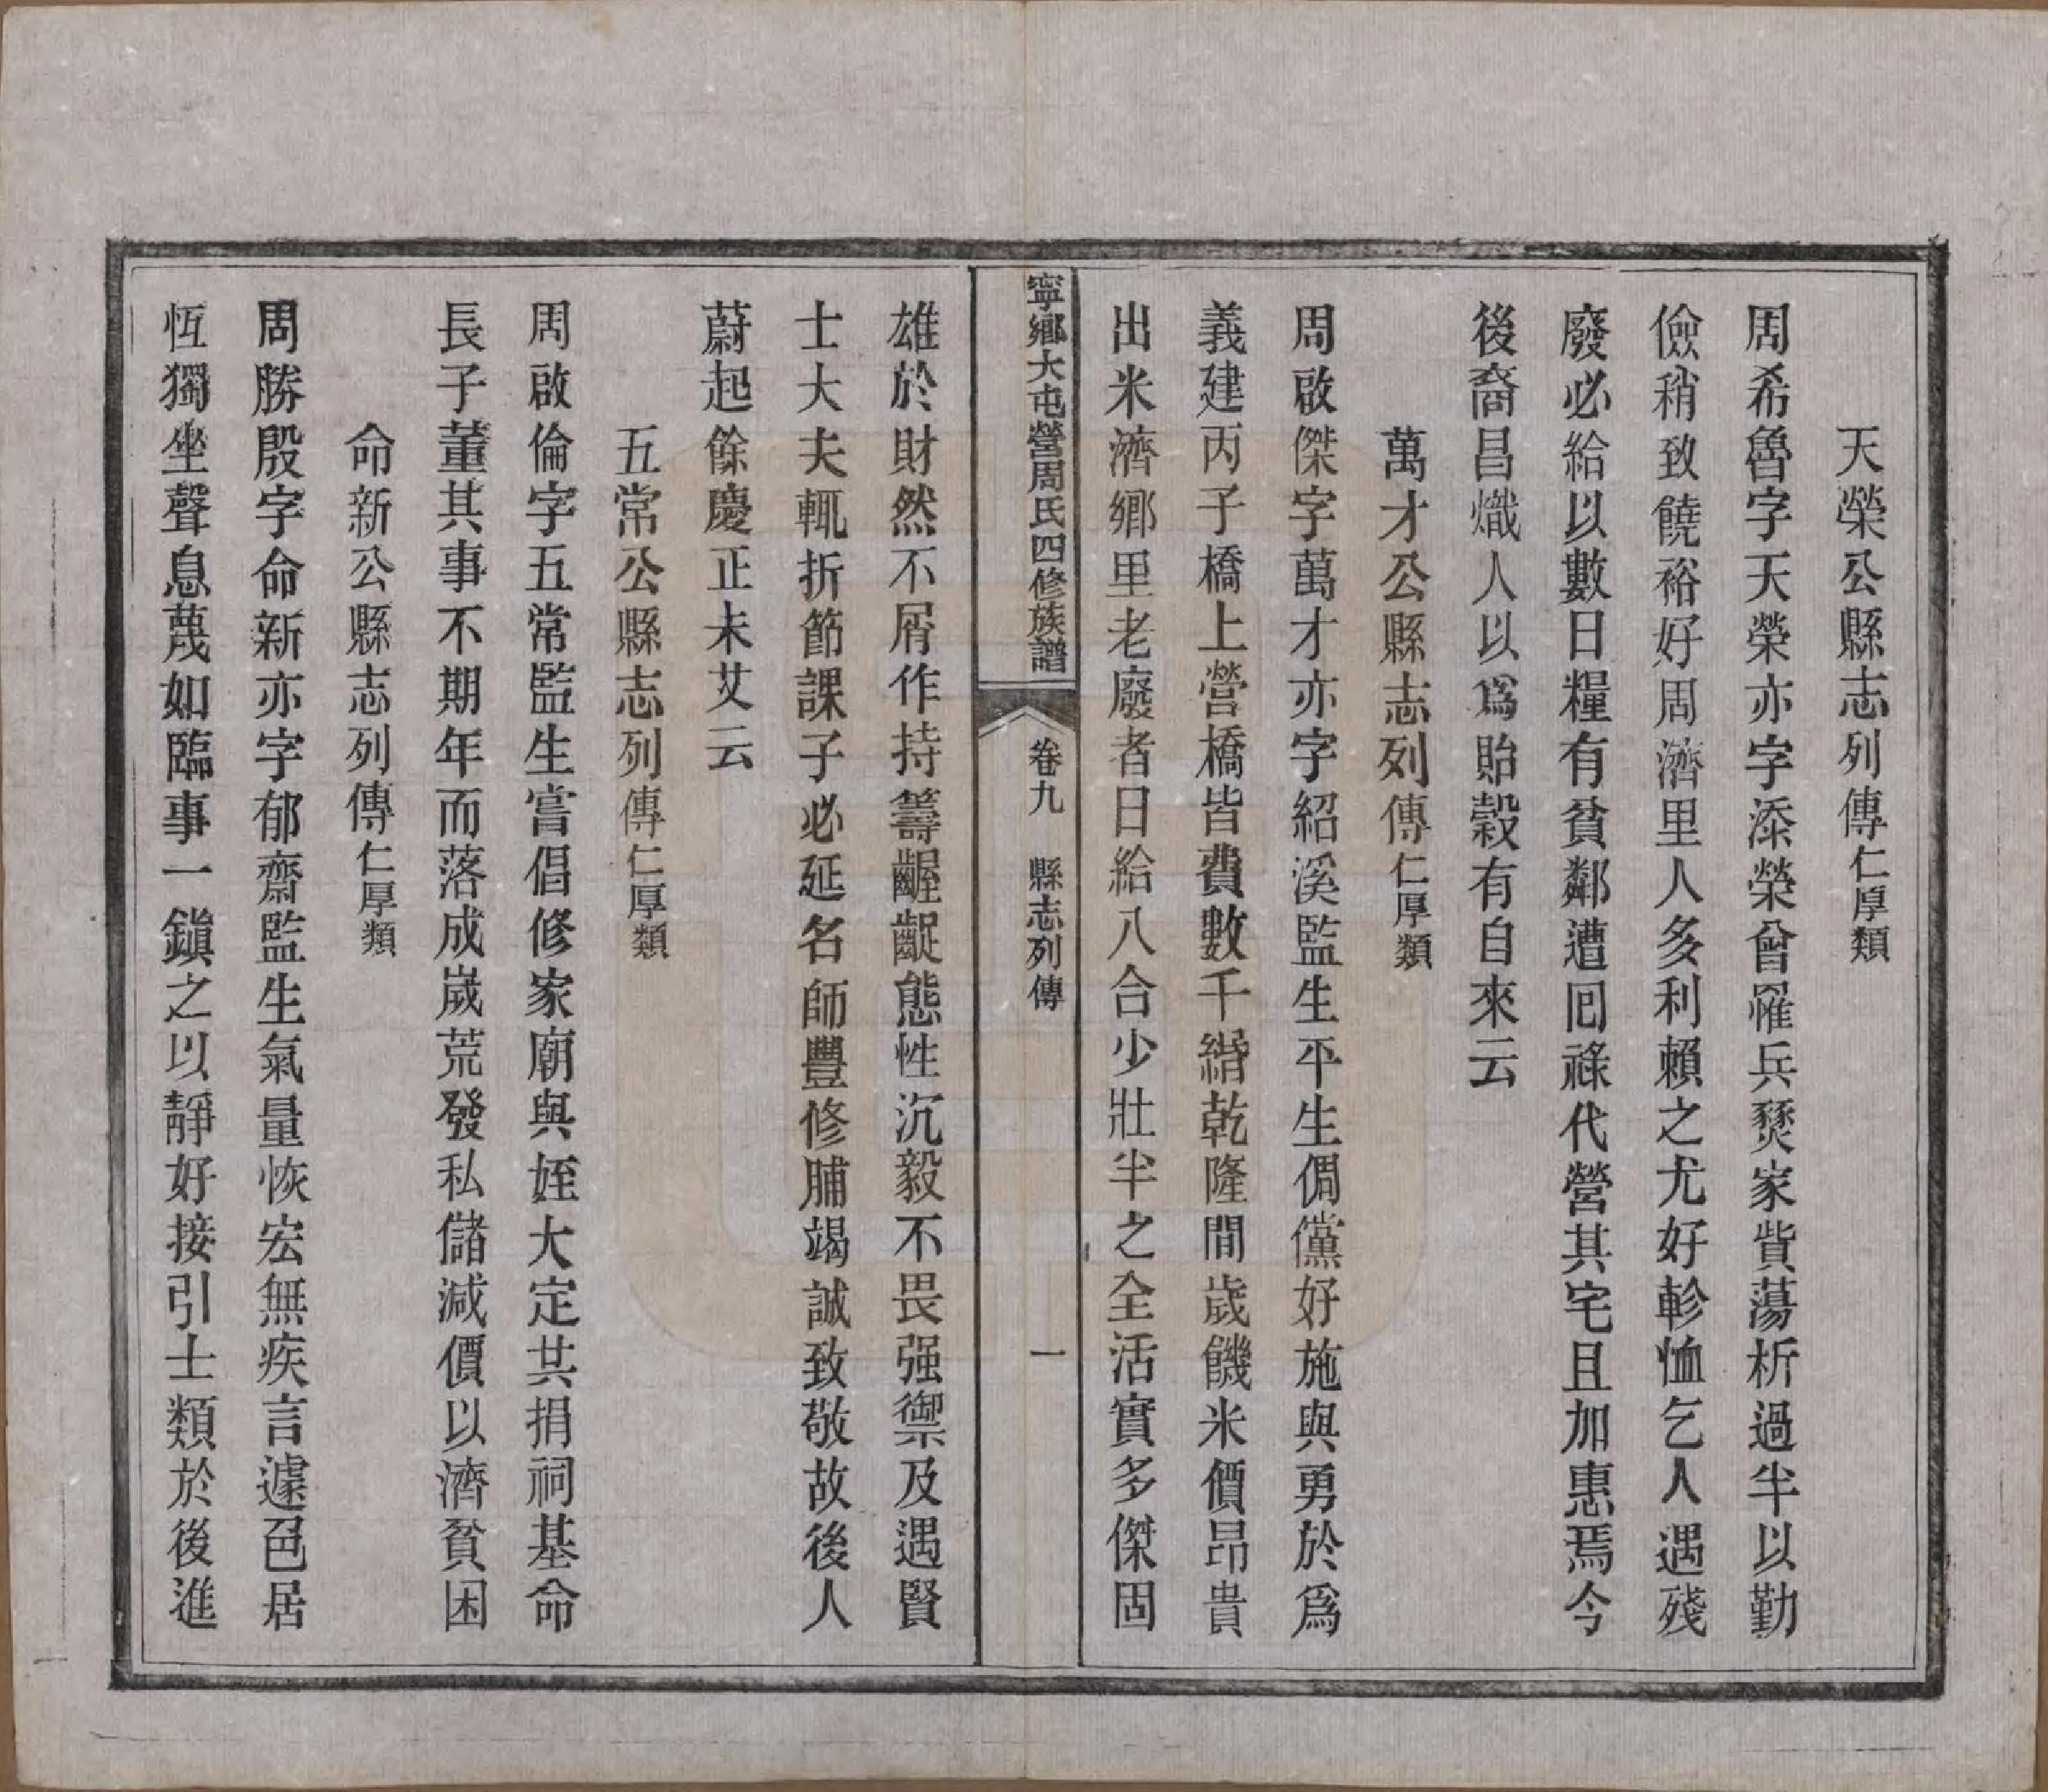 天榮公縣志列傳仁厚類
周希魯字天榮亦字添榮曾罹兵燹家貲蕩析過半以勤
儉稍致饒裕好周濟里人多利賴之尤好軫恤乞人遇殘
廢必給以數日糧有貧鄰遭囘祿代營其宅且加惠焉今
後裔昌熾人以爲貽穀有自來云
萬才公縣志列傳仁厚類
周啟傑字萬才亦字紹溪監生平生倜儻好施與勇於爲
義建丙子橋上營橋皆費數千緡乾隆間歲饑米價昂貴
出米濟鄉里老廢者日給八合少壯半之全活實多傑固
寧鄉大屯營周氏四修族譜
卷九 縣志列傳 一
雄於財然不屑作持籌齷齪態性沉毅不畏强禦及遇賢
士大夫輒折節課子必延名師豐修脯竭誠致敬故後人
蔚起餘慶正未艾云
五常公縣志列傳仁厚類
周啟倫字五常監生嘗倡修家廟與姪大定共捐祠基命
長子董其事不期年而落成嵗荒發私儲減價以濟貧困
命新公縣志列傳仁厚類
周勝殷字命新亦字郁齋監生氣量恢宏無疾言遽色居
恆獨坐聲息蔑如臨事一鎭之以靜好接引士類於後進